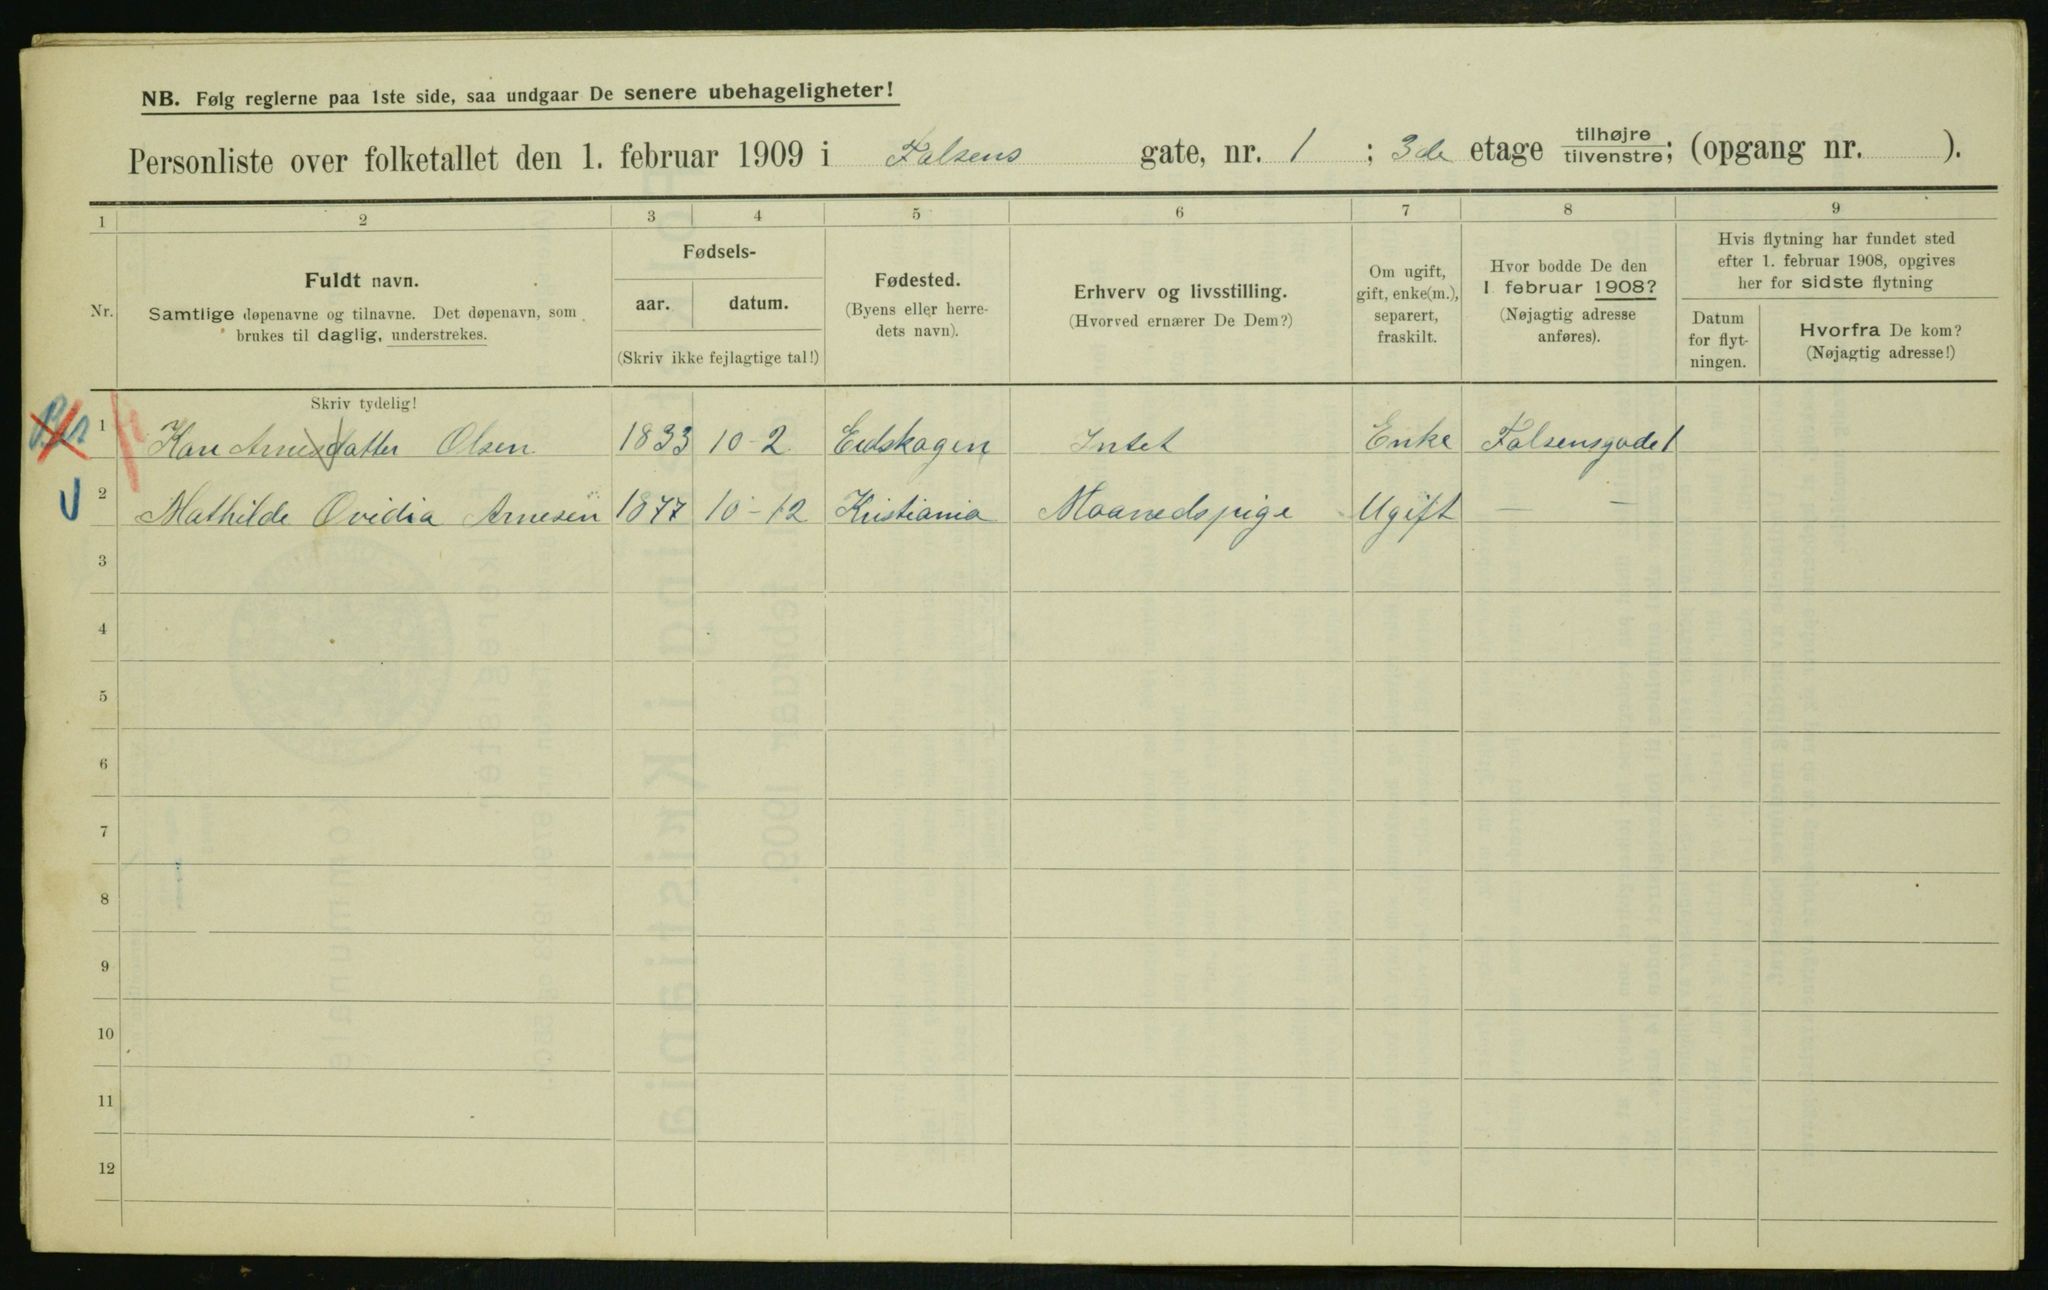 NB. Følg reglerne paa 1ste side, saa undgaar De senere ubehageligheter!
Personliste over folketallet den 1. februar 1909 i Falsens gate, nr. 1 ; 3de etage tilhøjre/tilvenstre; (opgang nr. ).
1 2 3 4 5 6 7 8 9
Nr.
Fuldt navn.
Samtlige døpenavne og tilnavne. Det døpenavn, som
brukes til daglig, understrekes.
Skriv tydelig!
Fødsels-
aar. datum.
(Skriv ikke fejlagtige tal!)
Fødested.
(Byens eller herre-
dets navn).
Erhverv og livsstilling.
(Hvorved ernærer De Dem?)
Om ugift,
gift, enke(m.),
separert,
fraskilt.
Hvor bodde De den
1. februar 1908?
(Nøjagtig adresse
anføres).
Hvis flytning har fundet sted
efter 1. februar 1908, opgives
her for sidste flytning
Datum
for flyt-
ningen.
Hvorfra De kom?
(Nøjagtig adresse!)
1 Kari Arnesdatter Olsen 1833 10-2 Eidskogen Intet Enke Falsensgade 1
2 Mathilde Ovidia Arnesen 1877 10-12 Kristiania Maanedspige Ugift — —
3
4
5
6
7
8
9
10
11
12